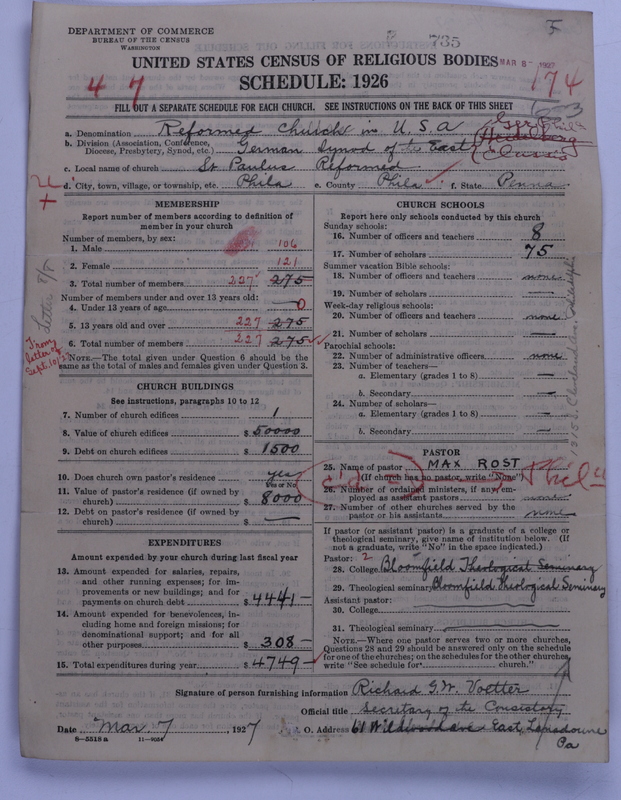 DEPARTMENT OF COMMERCE
BUREAU OF THE CENSUS
WASHINGTON
735
F
UNITED STATES CENSUS OF RELIGIOUS BODIES
MAR 8 1927
SCHEDULE: 1926
4 7
174
FILL OUT A SEPARATE SCHEDULE FOR EACH CHURCH. SEE INSTRUCTIONS ON THE BACK OF THIS SHEET
a. Denomination Reformed Church in U.S.A
b. Division (Association, Conference, Diocese, Presbytery, Synod, etc.) German Synod of the East
Heidelberg
Classis
c. Local name of church St Paulus Reformed
d. City, town, village, or township, etc. Phila e. County Phila f. State Penna
MEMBERSHIP
Report number of members according to definition of member in your church
Number of members, by sex:
1. Male 106
2. Female 121
3. Total number of members 227 275
Number of members under and over 13 years old:
4. Under 13 years of age 0
5. 13 years old and over 227 275
6. Total number of members 227 275
NOTE.—The total given under Question 6 should be the same as the total of males and females given under Question 3.
From letter of Sept.
CHURCH BUILDINGS
See instructions, paragraphs 10 to 12
7. Number of church edifices 1
8. Value of church edifices $ 50000
9. Debt on church edifices $ 1500
10. Does church own pastor's residence yes
Yes or No
11. Value of pastor's residence (if owned by church) $ 8000
12. Debt on pastor's residence (if owned by church) $ —
EXPENDITURES
Amount expended by your church during last fiscal year
13. Amount expended for salaries, repairs, and other running expenses; for improvements or new buildings; and for payments on church debt $ 4441
14. Amount expended for benevolences, including home and foreign missions; for denominational support; and for all other purposes $ 308 —
15. Total expenditures during year $ 4749 —
CHURCH SCHOOLS
Report here only schools conducted by this church
Sunday schools:
16. Number of officers and teachers 8
17. Number of scholars 75
Summer vacation Bible schools:
18. Number of officers and teachers none
19. Number of scholars —
Week-day religious schools:
20. Number of officers and teachers none
21. Number of scholars —
Parochial schools:
22. Number of administrative officers none
23. Number of teachers—
a. Elementary (grades 1 to 8) —
b. Secondary —
24. Number of scholars—
a. Elementary (grades 1 to 8) —
b. Secondary —
PASTOR
25. Name of pastor MAX ROST
(If church has no pastor, write "None")
26. Number of ordained ministers, if any, employed as assistant pastors none
27. Number of other churches served by the pastor or his assistants none
If pastor (or assistant pastor) is a graduate of a college or theological seminary, give name of institution below. (If not a graduate, write "No" in the space indicated.)
Pastor: 2
28. College Bloomfield Theological Seminary
29. Theological seminary Bloomfield Theological Seminary
Assistant pastor:
30. College
31. Theological seminary
NOTE.—Where one pastor serves two or more churches, Questions 28 and 29 should be answered only on the schedule for one of the churches; on the schedules for the other churches, write "See schedule for church."
Signature of person furnishing information Richard G.W. Voetter
Official title Secretary of the Consistory
Date Mar. 7, 1927 P. O. Address 61 Wildwood ave East Lansdowne
Pa
8—5518 a 11—9054